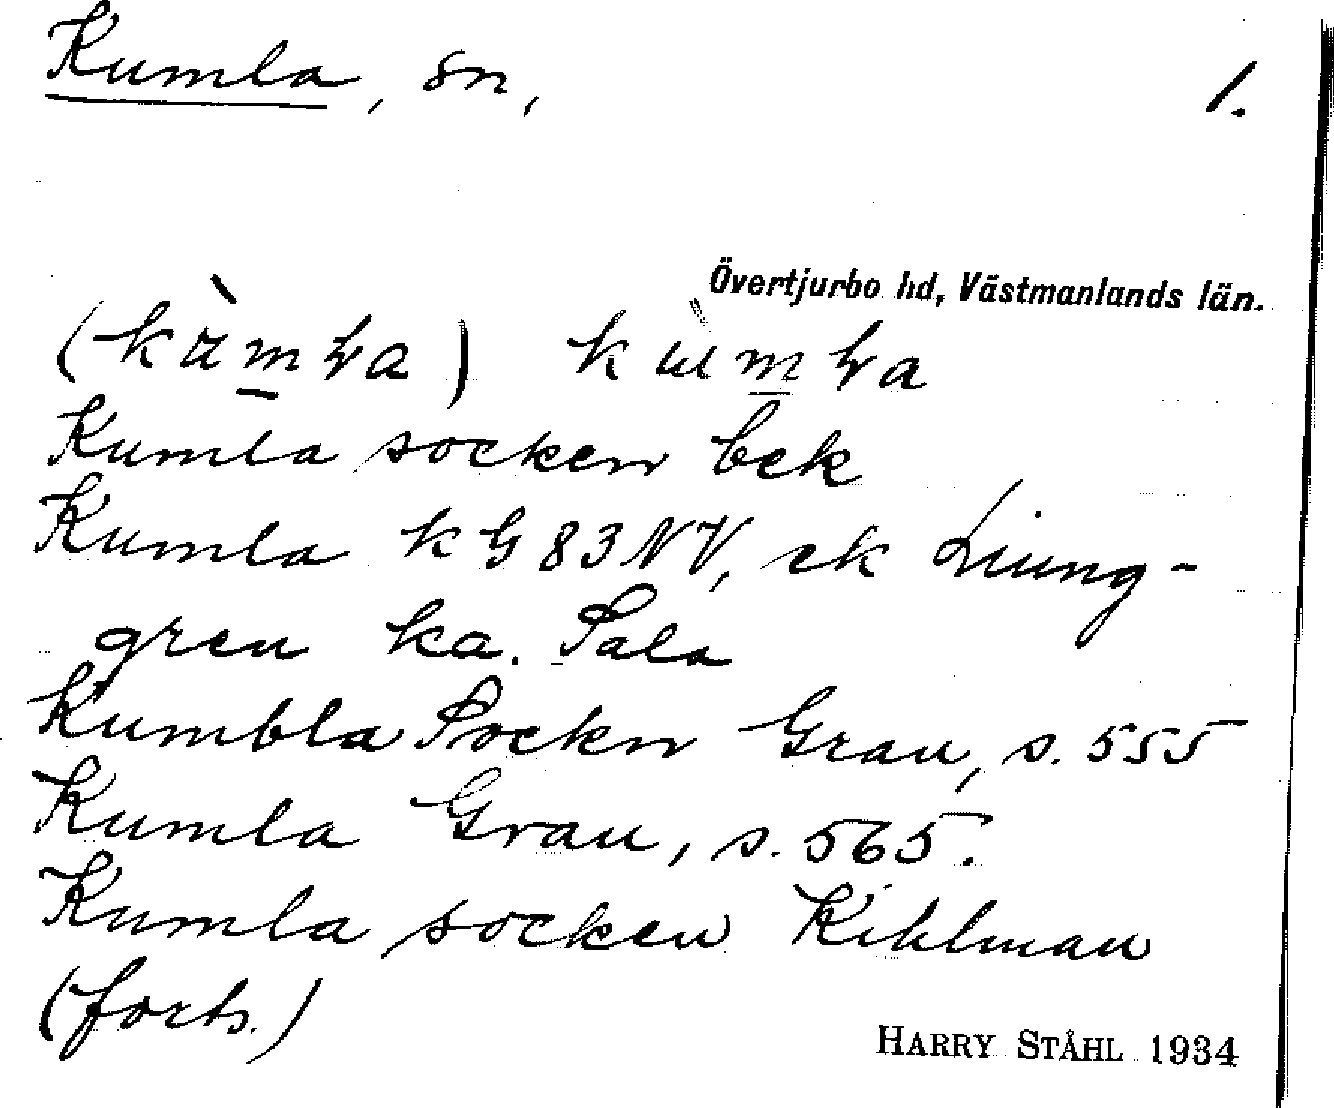 Kumla, sn, 1.
Övertjurbo hd, Västmanlands län.
Kumla socken bek
Kumla k G 83 NV, ek Liung-
gren ka. Sala
Kumbla Sockn Grau, s. 555
Kumla Grau, s. 565.
Kumla socken Kihlman
(forts.)
HARRY STÅHL 1934